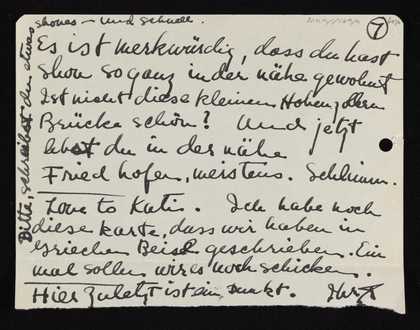 shönes – und schnell.
7
Es ist merkwürdig, dass du hast
shon so ganz in der nähe gewohnt
Ist nicht diese kleinen Hohenzollern
Brücke schön? Und jetzt
lebst du in der nähe
Friedhofen, meistens. Schlimm.
Love to Kati. Ich habe noch
diese karte, dass wir haben in
Griechen Beisl geschrieben. Ein
mal sollen wir es noch schicken.
Hier zuletzt ist ein Punkt.
Bitte, schreibst du etwas